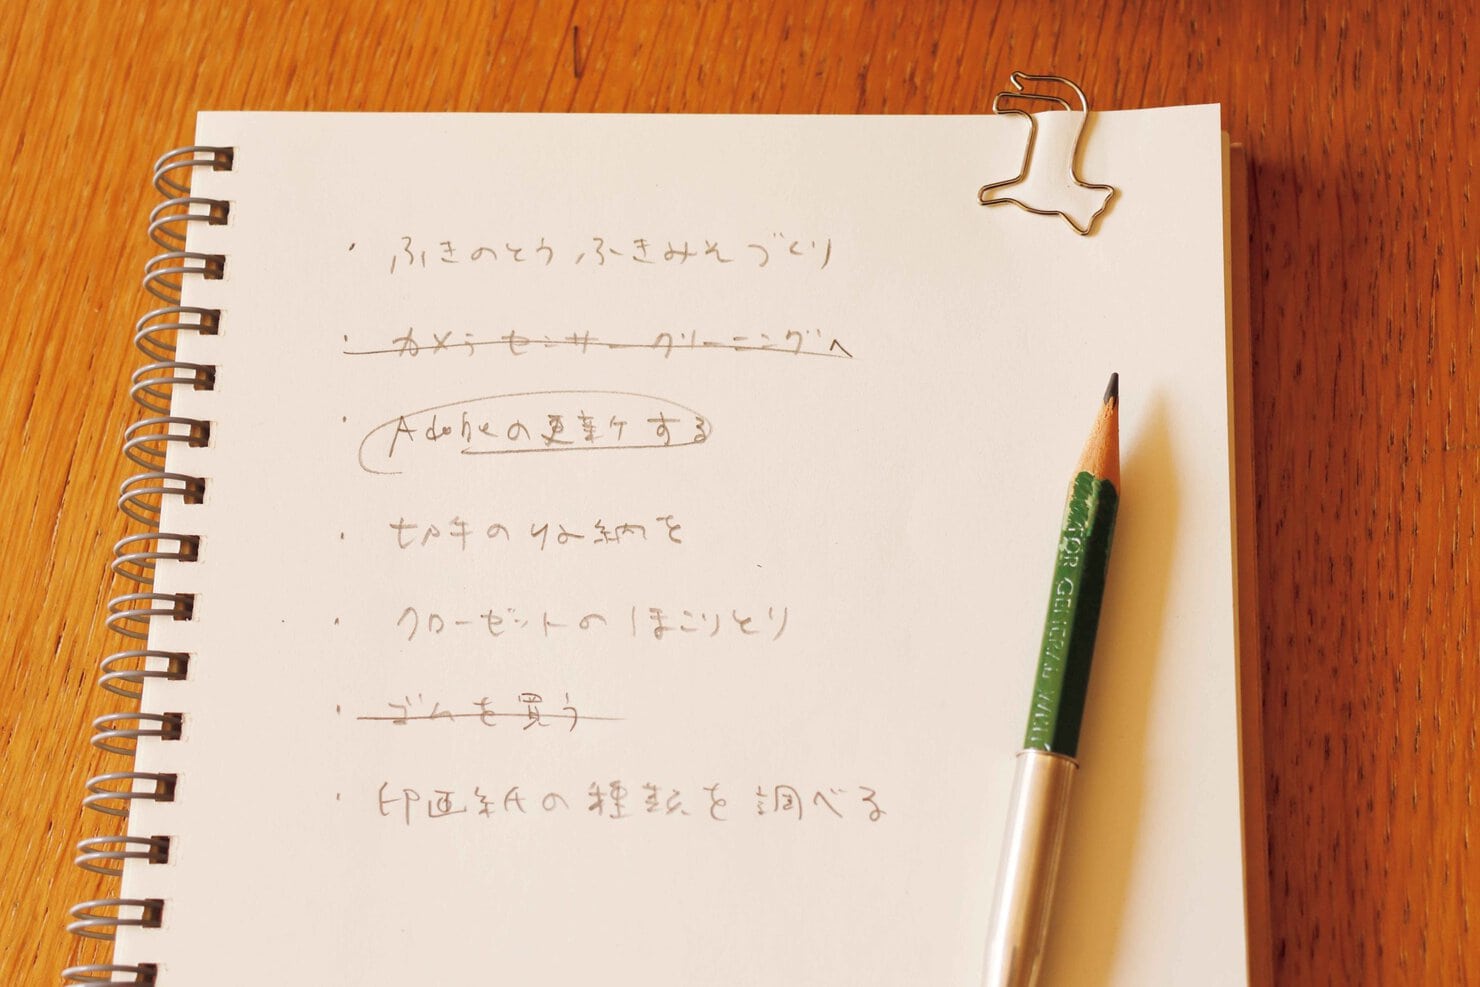 ・ふきのとう ふきみそづくり
・カメラセンサークリーニングへ
・Adobeの更新する
・切手の収納を
・クローゼットのほこりとり
・ゴムを買う
・印画紙の種類を調べる
FOR GENERAL WRIT